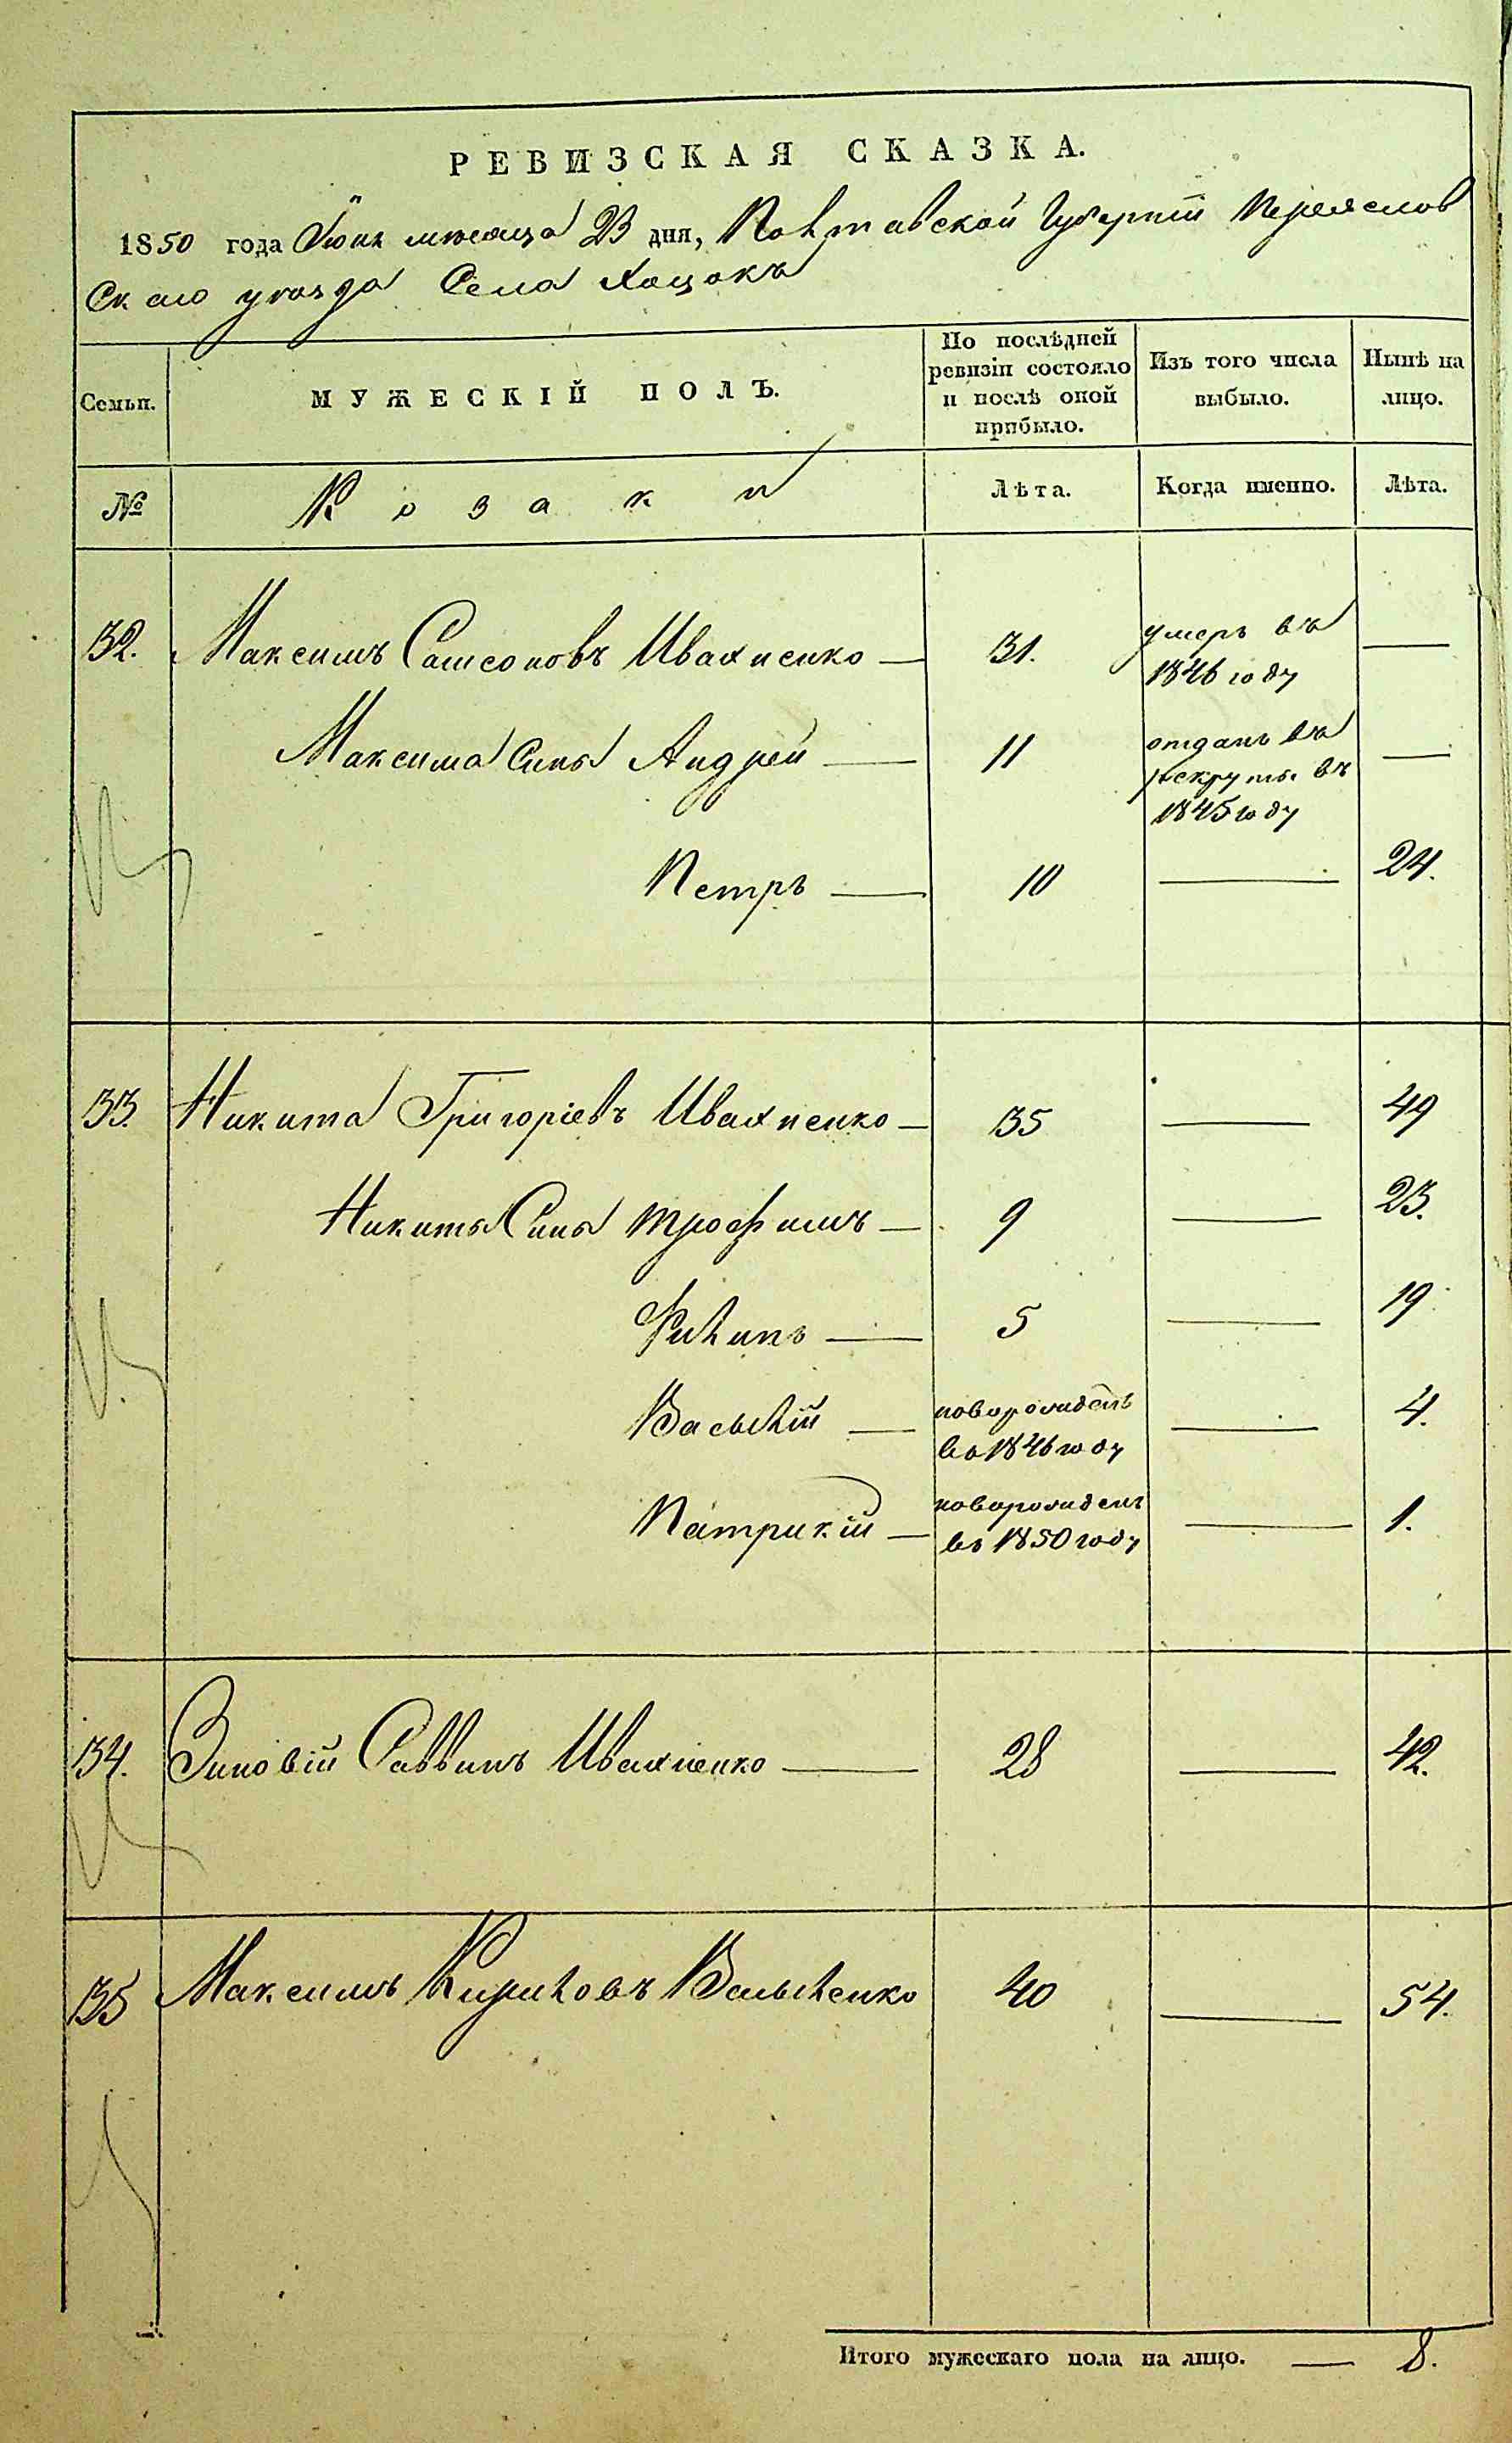 РЕВИЗСКАЯ СКАЗКА.
1850 года Июня мѣсяца 23 дня, Полтавской Губерніи Переяслов
Скаго уѣзда Села Хоцокъ
Семьи.
МУЖЕСКІЙ ПОЛЪ.
По послѣдней ревизіи состояло и послѣ оной прибыло.
Изъ того числа выбыло.
Нынѣ на лицо.
№
Козаки
Лѣта.
Когда именно.
Лѣта.
32. Максимъ Самсоновъ Ивахненко — 31. умеръ въ 1846 году —
Максима Сынъ Андрей — 11 отданъ въ рекруты въ 1845 году —
Петръ — 10 — 24.
33. Никита Григоріевъ Ивахненко — 35 — 49
Никиты Сынъ Трофимъ — 9 — 23.
Филипъ — 5 — 19.
Василій — новорожденъ въ 1846 году — 4.
Патрикій — новорожденъ въ 1850 году — 1.
34. Зиновій Саввинъ Ивахненко — 28 — 42.
35 Максимъ Кириловъ Василенко 40 — 54.
Итого мужескаго пола на лицо. — 8.